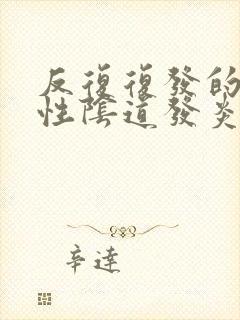 反復復發的
性陰道發炎
辛達